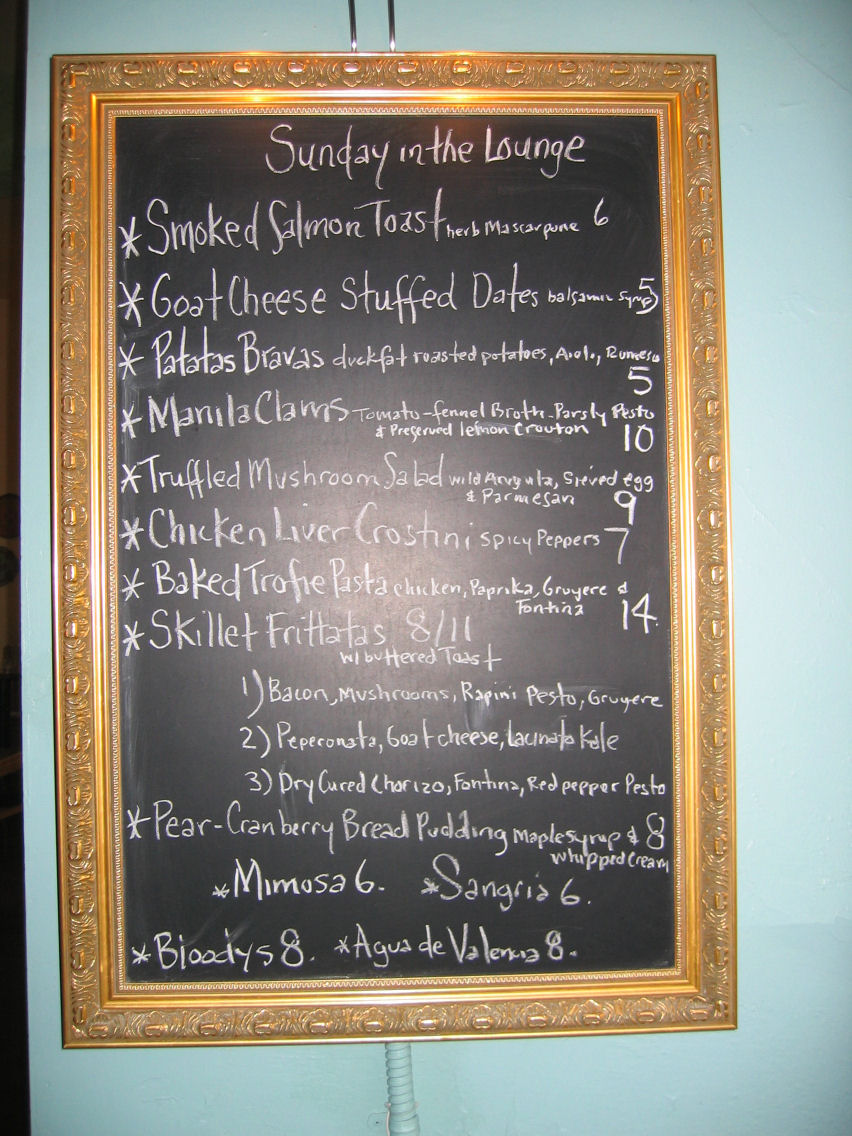 Sunday in the Lounge
* Smoked Salmon Toast herb Mascarpone 6
* Goat Cheese Stuffed Dates balsamic syrup 5
* Patatas Bravas duckfat roasted potatoes, Aiolo, Romesco
5
* Manila Clams Tomato-fennel Broth-Parsly Pesto
& Preserved lemon Crouton 10
* Truffled Mushroom Salad wild Arugula, Sieved egg
& Parmesan 9
* Chicken Liver Crostini spicy Peppers 7
* Baked Trofie Pasta chicken, Paprika, Gruyere &
Fontina 14.
* Skillet Frittatas 8/11
w/ buttered Toast
1) Bacon, Mushrooms, Rapini Pesto, Gruyere
2) Peperonata, Goat cheese, Lacinato Kale
3) Dry Cured Chorizo, Fontina, Red pepper Pesto
* Pear-Cranberry Bread Pudding Maple syrup & 8
whipped Cream
* Mimosa 6. * Sangria 6.
* Bloodys 8. * Agua de Valencia 8.